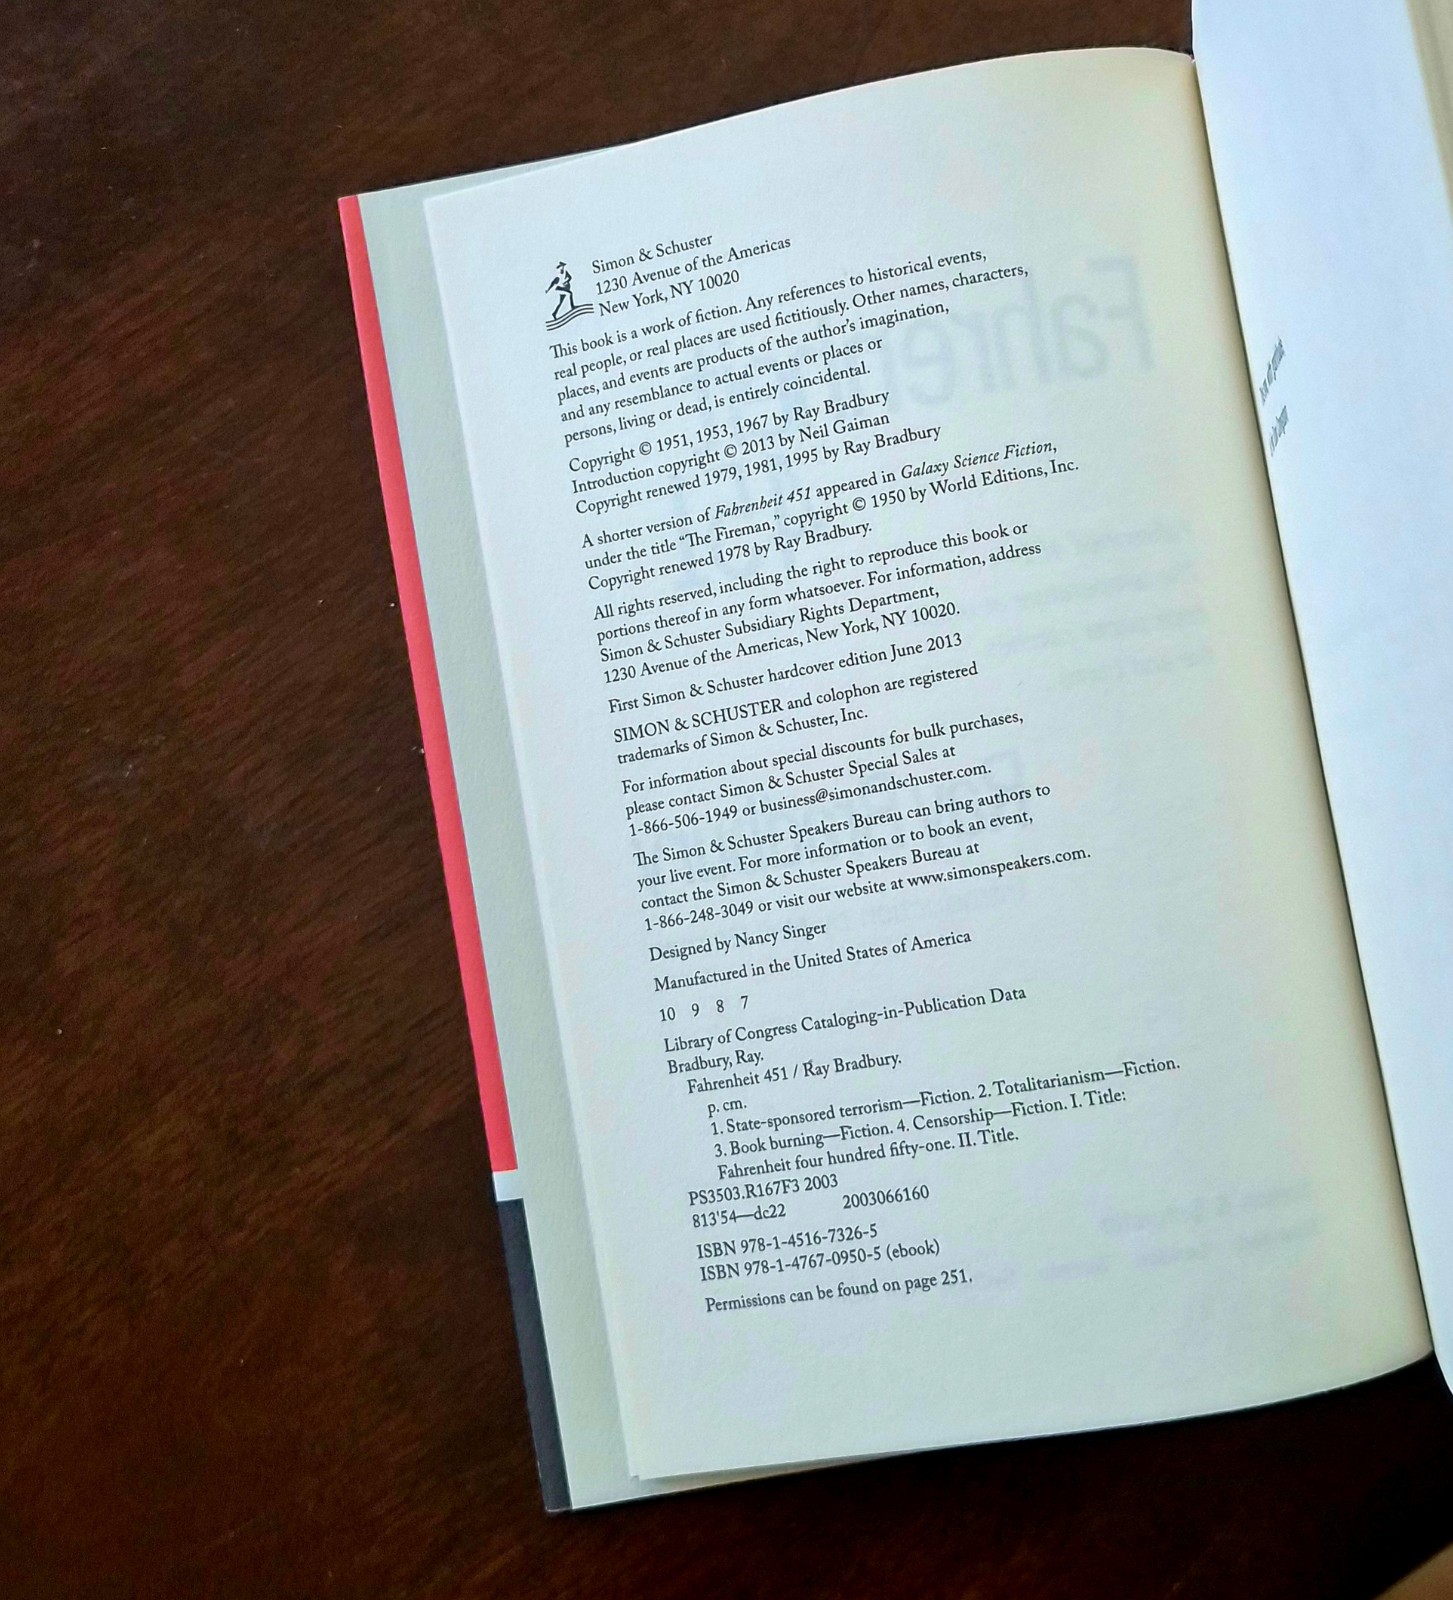 Simon & Schuster
1230 Avenue of the Americas
New York, NY 10020
This book is a work of fiction. Any references to historical events,
real people, or real places are used fictitiously. Other names, characters,
places, and events are products of the author's imagination,
and any resemblance to actual events or places or
persons, living or dead, is entirely coincidental.
Copyright © 1951, 1953, 1967 by Ray Bradbury
Introduction copyright © 2013 by Neil Gaiman
Copyright renewed 1979, 1981, 1995 by Ray Bradbury
A shorter version of Fahrenheit 451 appeared in Galaxy Science Fiction,
under the title “The Fireman,” copyright © 1950 by World Editions, Inc.
Copyright renewed 1978 by Ray Bradbury.
All rights reserved, including the right to reproduce this book or
portions thereof in any form whatsoever. For information, address
Simon & Schuster Subsidiary Rights Department,
1230 Avenue of the Americas, New York, NY 10020.
First Simon & Schuster hardcover edition June 2013
SIMON & SCHUSTER and colophon are registered
trademarks of Simon & Schuster, Inc.
For information about special discounts for bulk purchases,
please contact Simon & Schuster Special Sales at
1-866-506-1949 or business@simonandschuster.com.
The Simon & Schuster Speakers Bureau can bring authors to
your live event. For more information or to book an event,
contact the Simon & Schuster Speakers Bureau at
1-866-248-3049 or visit our website at www.simonspeakers.com.
Designed by Nancy Singer
Manufactured in the United States of America
10 9 8 7
Library of Congress Cataloging-in-Publication Data
Bradbury, Ray.
Fahrenheit 451 / Ray Bradbury.
p. cm.
1. State-sponsored terrorism—Fiction. 2. Totalitarianism—Fiction.
3. Book burning—Fiction. 4. Censorship—Fiction. I. Title:
Fahrenheit four hundred fifty-one. II. Title.
PS3503.R167F3 2003
813'54—dc22 2003066160
ISBN 978-1-4516-7326-5
ISBN 978-1-4767-0950-5 (ebook)
Permissions can be found on page 251.